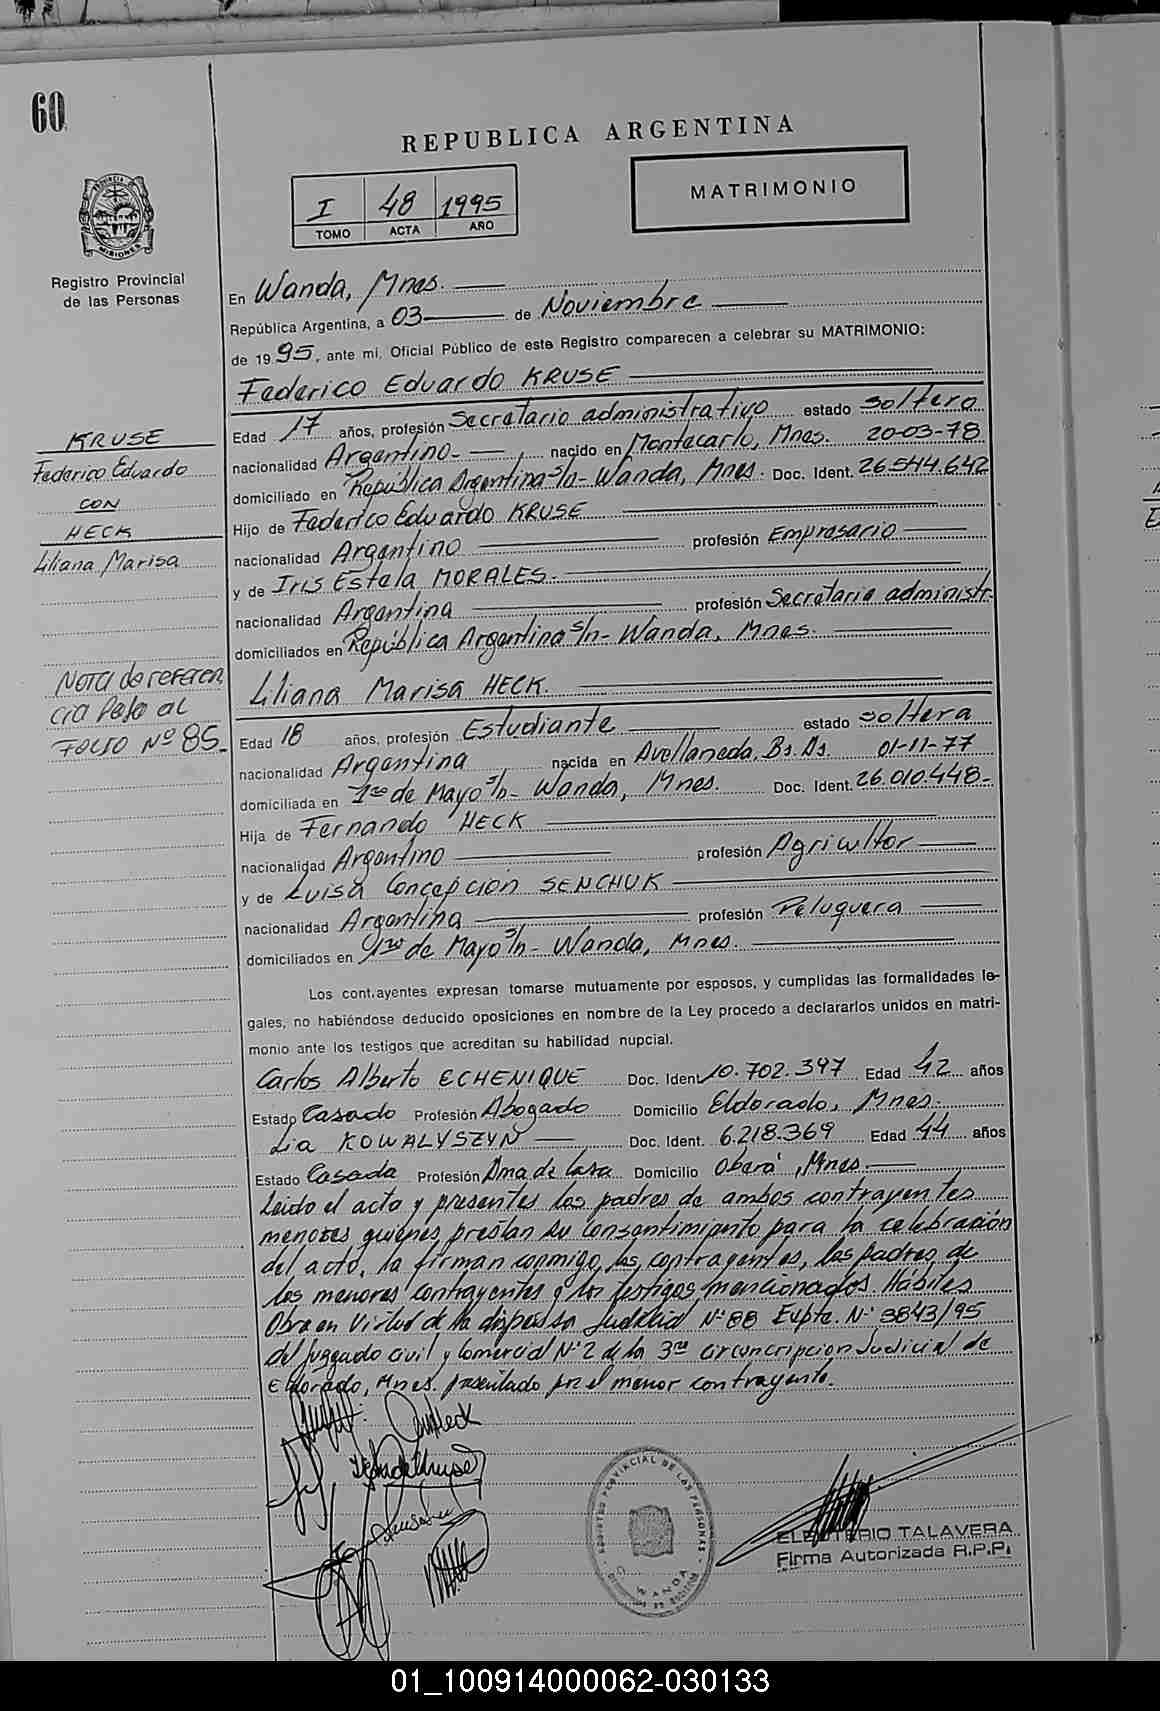 60
REPUBLICA ARGENTINA
I 48 1995
TOMO ACTA AÑO
MATRIMONIO
PROVINCIA DE MISIONES
Registro Provincial
de las Personas
En Wanda, Mnes.
República Argentina, a 03 de Noviembre
de 1995, ante mi, Oficial Público de este Registro comparecen a celebrar su MATRIMONIO:
Federico Eduardo KRUSE
Edad 17 años, profesión Secretario administrativo estado soltero
nacionalidad Argentino nacido en Montecarlo, Mnes. 20-03-78
domiciliado en República Argentina s/n - Wanda, Mnes. Doc. Ident. 26.544.642
Hijo de Federico Eduardo KRUSE
nacionalidad Argentino profesión Empresario
y de Iris Estela MORALES.
nacionalidad Argentina profesión Secretaria administr.
domiciliados en República Argentina s/n - Wanda, Mnes.
KRUSE
Federico Eduardo
CON
HECK
Liliana Marisa
Nota de referen
cia Pase al
FOLIO Nº 85.
Liliana Marisa HECK.
Edad 18 años, profesión Estudiante estado soltera
nacionalidad Argentina nacida en Avellaneda, Bs. As. 01-11-77
domiciliada en 1ro de Mayo s/n - Wanda, Mnes. Doc. Ident. 26.010.448-
Hija de Fernando HECK
nacionalidad Argentino profesión Agricultor
y de Luisa Concepcion SENCHUK
nacionalidad Argentina profesión Peluquera
domiciliados en 1ro de Mayo s/n - Wanda, Mnes.
Los contrayentes expresan tomarse mutuamente por esposos, y cumplidas las formalidades le-
gales, no habiéndose deducido oposiciones en nombre de la Ley procedo a declararlos unidos en matri-
monio ante los testigos que acreditan su habilidad nupcial.
Carlos Alberto ECHENIQUE Doc. Ident. 10.702.397 Edad 42 años
Estado Casado Profesión Abogado Domicilio Eldorado, Mnes.
Lia KOWALYSZYN Doc. Ident. 6.218.369 Edad 44 años
Estado Casada Profesión Ama de Casa Domicilio Oberá, Mnes.
Leido el acta y presentes los padres de ambos contrayentes
menores quienes prestan su consentimiento para la celebración
del acto, la firman conmigo, los contrayentes, los padres de
los menores contrayentes y los testigos mencionados. Hábiles
Obra en Virtud de la dispensa Judicial Nº 88 Expte. Nº 3843/95
del juzgado civil y Comercial Nº 2 de la 3ra circuncripcion Judicial de
Eldorado, Mnes. presentado por el menor contrayente.
REGISTRO PROVINCIAL DE LAS PERSONAS
WANDA
ELEUTERIO TALAVERA
Firma Autorizada R.P.P.
01_100914000062-030133